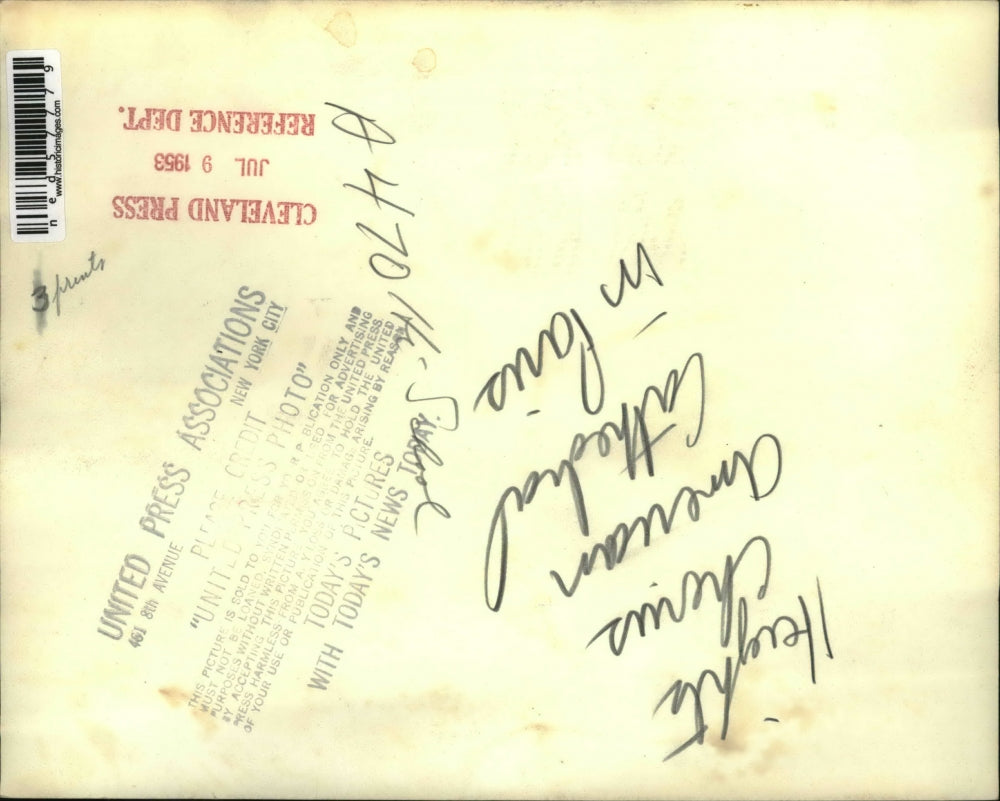 ned57779
www.historicimages.com
CLEVELAND PRESS
JUL 9 1953
REFERENCE DEPT.
3 prints
UNITED PRESS ASSOCIATIONS
461 8th AVENUE NEW YORK CITY
PLEASE CREDIT
"UNITED PRESS PHOTO"
THIS PICTURE IS SOLD TO YOU FOR YOUR PUBLICATION ONLY AND
MUST NOT BE LOANED, SYNDICATED OR USED FOR ADVERTISING
PURPOSES WITHOUT WRITTEN PERMISSION FROM THE UNITED PRESS.
BY ACCEPTING THIS PICTURE YOU AGREE TO HOLD THE UNITED
PRESS HARMLESS FROM ANY LOSS OR DAMAGE ARISING BY REASON
OF YOUR USE OR PUBLICATION OF THIS PICTURE.
TODAY'S PICTURES
WITH TODAY'S NEWS TODAY.
Heights
Chorus
American
Cathedral
in Paris